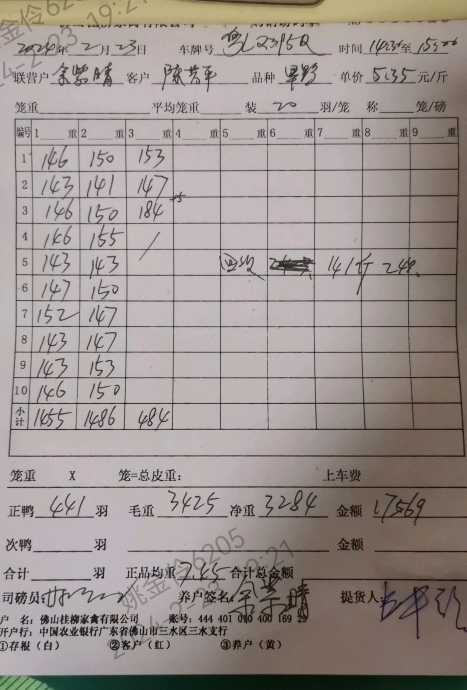 2024年 2月 23日 车牌号 时间 14:30至 15:00
联营户 余紫晴 客户 品种 单价 5.35 元/斤
笼重 平均笼重 装 20 羽/笼 称 笼/磅
编号 1 重 2 重 3 重 4 重 5 重 6 重 7 重 8 重 9 重
1 146 150 153
2 143 141 147
3 146 150 184 +5
4 146 155 /
5 143 143 回收 141斤
6 147 150
7 152 147
8 143 147
9 143 153
10 146 150
小计 1455 1486 484
笼重 X 笼=总皮重: 上车费
正鸭 441 羽 毛重 3425 净重 3284 金额 17569
次鸭 羽 金额
合计 羽 正品均重 7.45 合计总金额
司磅员 养户签名: 余紫晴 提货人
户 名: 佛山桂柳家禽有限公司 账号: 444 401 010 400 169 29
开户行: 中国农业银行广东省佛山市三水区三水支行
①存根(白) ②客户(红) ③养户(黄)
姚金伶6205